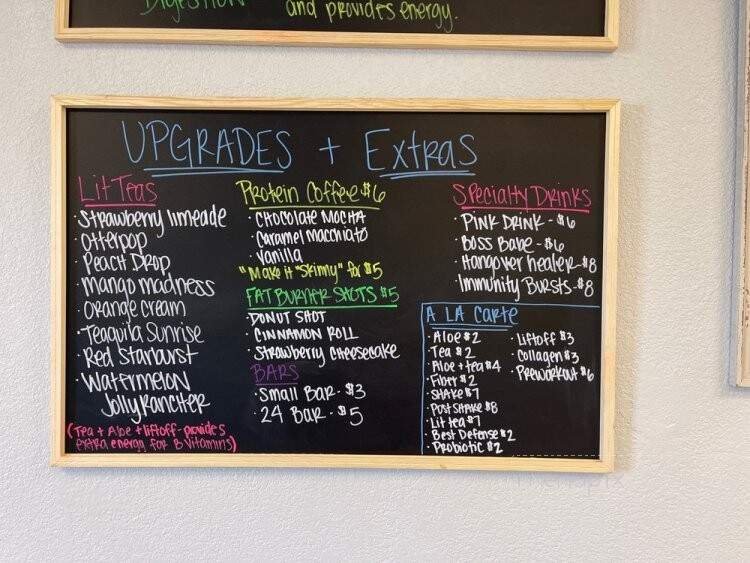 Digestion
and provides energy.
UPGRADES + Extras
Lit Teas
· Strawberry limeade
· Otterpop
· Peach Drop
· Mango madness
· Orange Cream
· Teaquila Sunrise
· Red Starburst
· Watermelon
Jolly Rancher
(Tea + Aloe + liftoff - provides
extra energy for B vitamins)
Protein Coffee $6
· Chocolate Mocha
· Caramel macchiato
· Vanilla
"Make it "Skinny" for $5
FAT BURNER SHOTS $5
· Donut Shot
· Cinnamon Roll
· Strawberry Cheesecake
BARS
· Small Bar - $3
· 24 Bar - $5
Specialty Drinks
· Pink Drink - $6
· Boss Babe - $6
· Hangover healer - $8
· Immunity Bursts - $8
A LA CARTE
· Aloe $2
· Tea $2
· Aloe + tea $4
· Fiber $2
· Shake $7
· Post Shake $8
· Lit tea $7
· Best Defense $2
· Probiotic $2
· Liftoff $3
· Collagen $3
· Preworkout $6